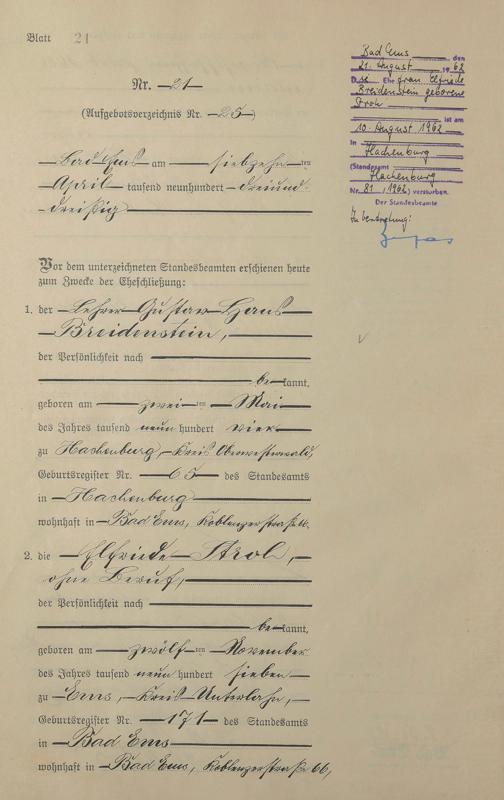 Blatt 21
Nr. 21
(Aufgebotsverzeichnis Nr. 25)
Bad Ems am siebzehnten
April tausend neunhundert dreiund-
dreißig
Vor dem unterzeichneten Standesbeamten erschienen heute
zum Zwecke der Eheschließung:
1. der Lehrer Gustav Hans
Breidenstein,
der Persönlichkeit nach
be kannt,
geboren am zweiten Mai
des Jahres tausend neun hundert vier
zu Hachenburg, Kreis Oberwesterwald,
Geburtsregister Nr. 65 des Standesamts
in Hachenburg
wohnhaft in Bad Ems, Koblenzerstraße
2. die Elfriede
ohne Beruf,
der Persönlichkeit nach
be kannt,
geboren am zwölften November
des Jahres tausend neun hundert sieben
zu Ems, Kreis Unterlahn,
Geburtsregister Nr. 171 des Standesamts
in Bad Ems
wohnhaft in Bad Ems, Koblenzerstraße 66,
Bad Ems, den
21. August 1962
Die Ehefrau Elfriede
Breidenstein geborene
ist am
10. August 1962
in Hachenburg
(Standesamt Hachenburg
Nr. 81 / 1962) verstorben.
Der Standesbeamte
In Vertretung: